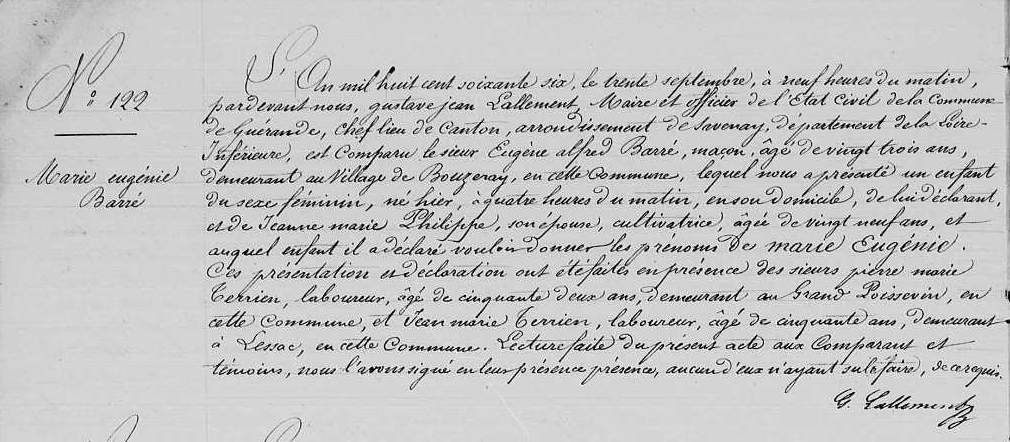 N° 122
Marie eugénie
Barré
L'An mil huit cent soixante six, le trente septembre, à neuf heures du matin,
par devant nous, gustave jean Lallement, Maire et officier de l'Etat Civil de la Commune
de Guérande, chef lieu de Canton, arrondissement de Savenay, département de la Loire-
Inférieure, est Comparu le sieur Eugène alfred Barré, maçon, âgé de vingt trois ans,
demeurant au Village de Bouzeray, en cette Commune, lequel nous a présenté un enfant
du sexe féminin, né hier, à quatre heures du matin, en son domicile, de lui déclarant,
et de Jeanne marie Philippe, son épouse, cultivatrice, âgée de vingt neuf ans, et
auquel enfant il a déclaré vouloir donner les prénoms de marie Eugénie.
Ces présentation et déclaration ont été faites en présence des sieurs pierre marie
Terrien, laboureur, âgé de cinquante deux ans, demeurant au Grand Poissevin, en
cette Commune, et Jean marie Terrien, laboureur, âgé de cinquante ans, demeurant
à Lessac, en cette Commune. Lecture faite du présent acte aux Comparant et
témoins, nous l'avons signé en leur présence présence, aucun d'eux n'ayant su le faire, de ce requis.
G. Lallement